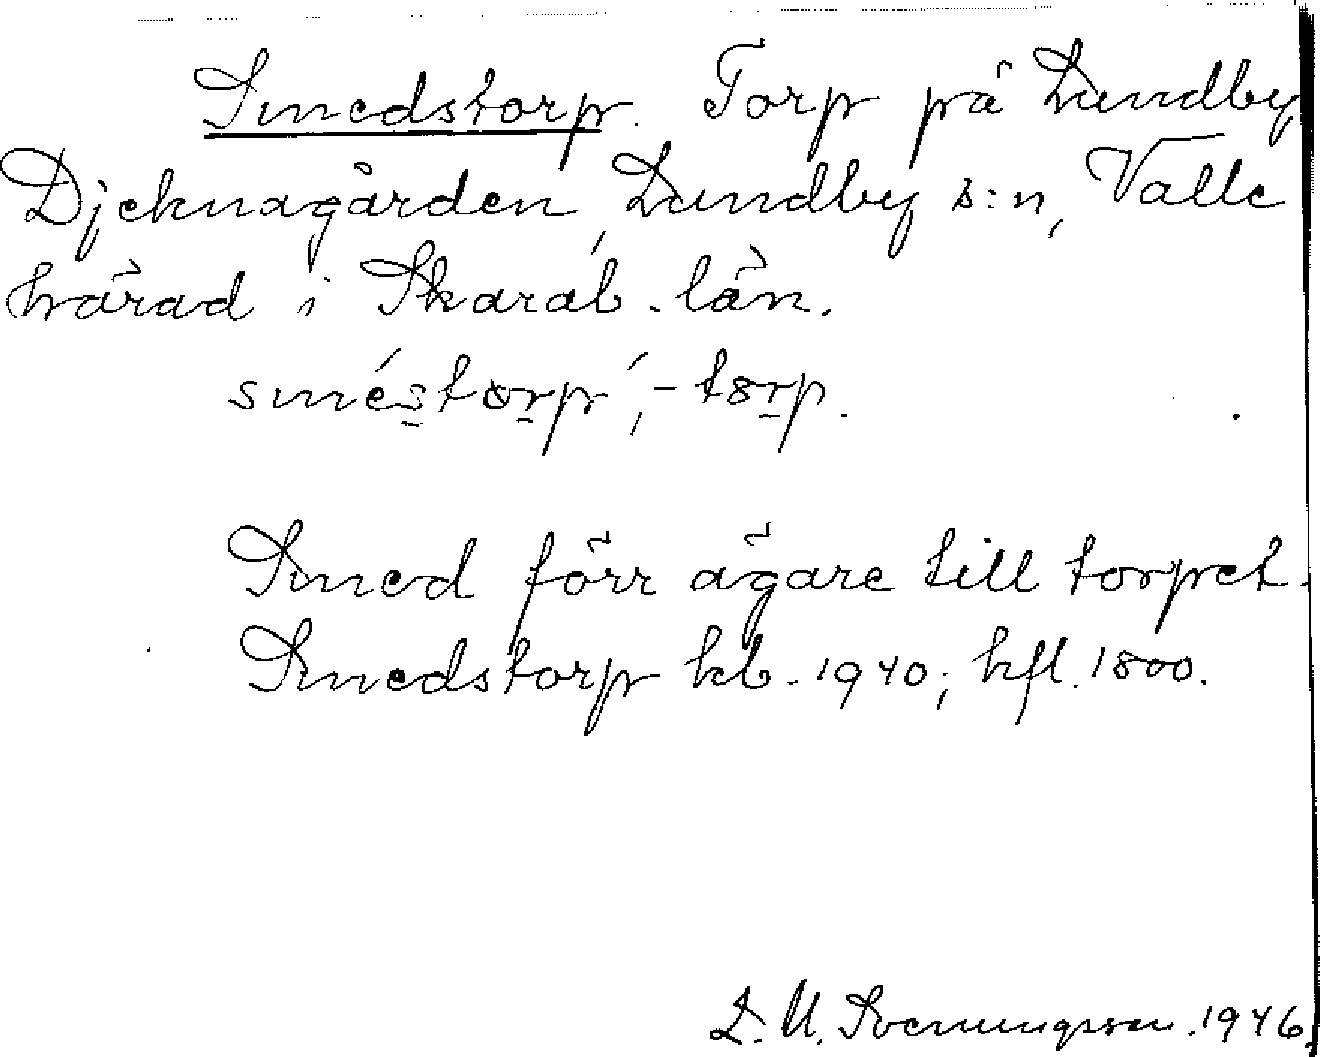 Smedstorp. Torp på Lundby
Djeknagården, Lundby s:n, Valle
härad i Skarab. län.
sméstorp, -torp.
Smed förr ägare till torpet.
Smedstorp kb. 1940; hfl. 1800.
D. U. Svenungsson. 1946.